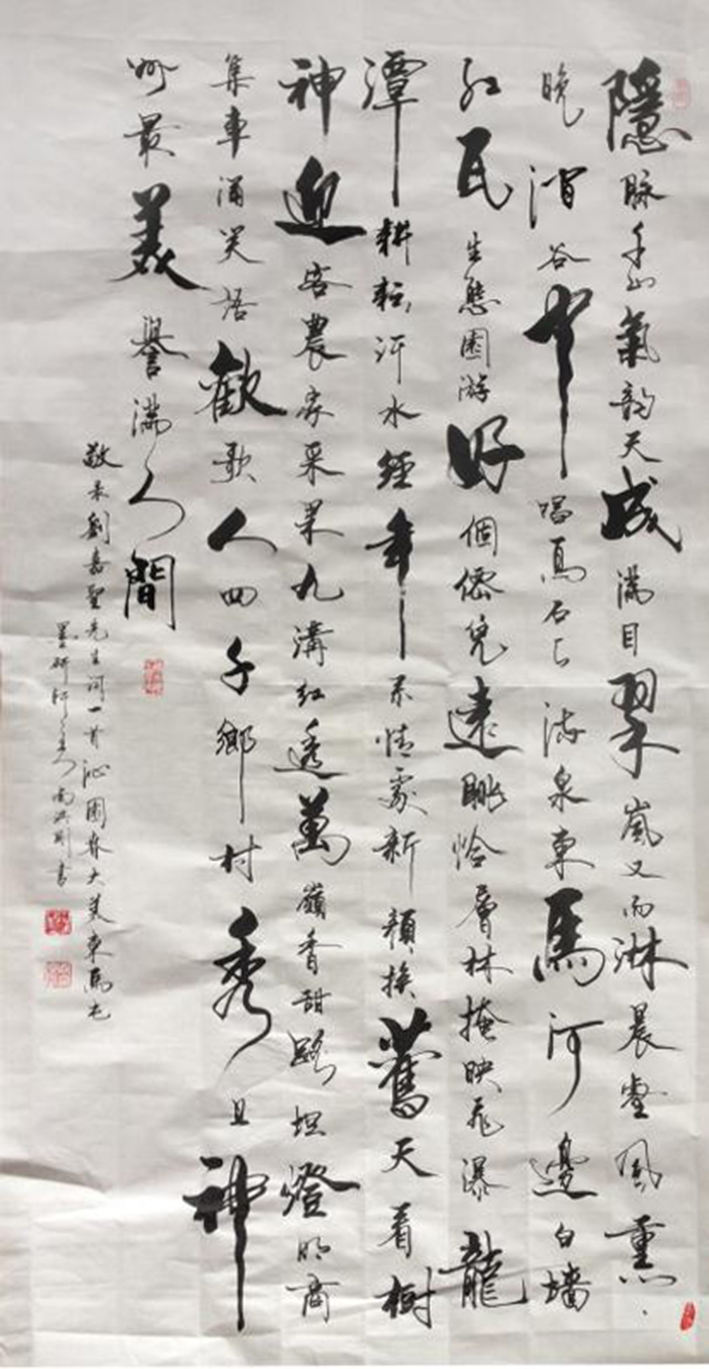 隱脉千山氣韵天成滿目翠嵐又雨淋晨壑風熏
晚澗谷中唱鳥石上流泉東馬河邊白墻
紅瓦生態園游好個僊兒遠眺恰層林掩映飛瀑龍
潭耕耘汗水經年系情處新顏換舊天看樹
神迎客農家采果九溝紅透萬嶺香甜路坦燈明商
集車涌笑語歡歌人四千鄉村秀且神
州最美譽滿人間
敬录劉嘉聖先生詞一首沁園春大美東馬屯
墨研軒主人南書